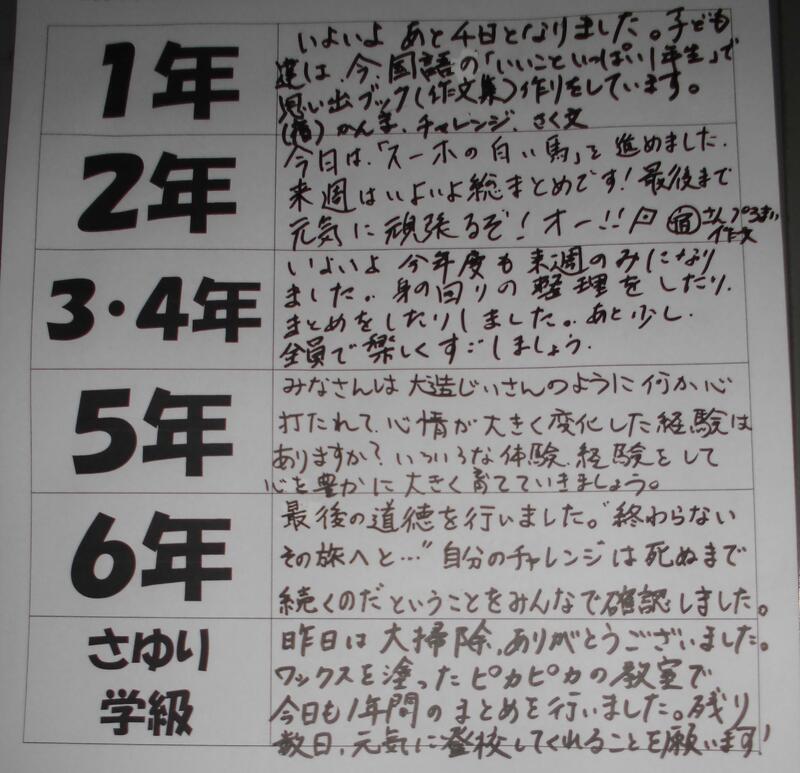 1年
いよいよ あと4日となりました。子ども
達は、今、国語の「いいこといっぱい1年生」で
思い出ブック(作文集)作りをしています。
(宿)かんま、チャレンジ、さく文
2年
今日は、「スーホの白い馬」を進めました。
来週はいよいよ総まとめです!最後まで
元気に頑張るぞ!オー!!
宿 さんプろまい
作文
3・4年
いよいよ 今年度も来週のみになり
ました。身の回りの整理をしたり、
まとめをしたりしました。あと少し、
全員で楽しくすごしましょう。
5年
みなさんは大造じいさんのように何か心
打たれて、心情が大きく変化した経験は
ありますか?いろいろな体験、経験をして
心を豊かに大きく育てていきましょう。
6年
最後の道徳を行いました。"終わらない
その旅へと…"自分のチャレンジは死ぬまで
続くのだということをみんなで確認しました。
さゆり
学級
昨日は大掃除、ありがとうございました。
ワックスを塗ったピカピカの教室で
今日も1年間のまとめを行いました。残り
数日、元気に登校してくれることを願います!